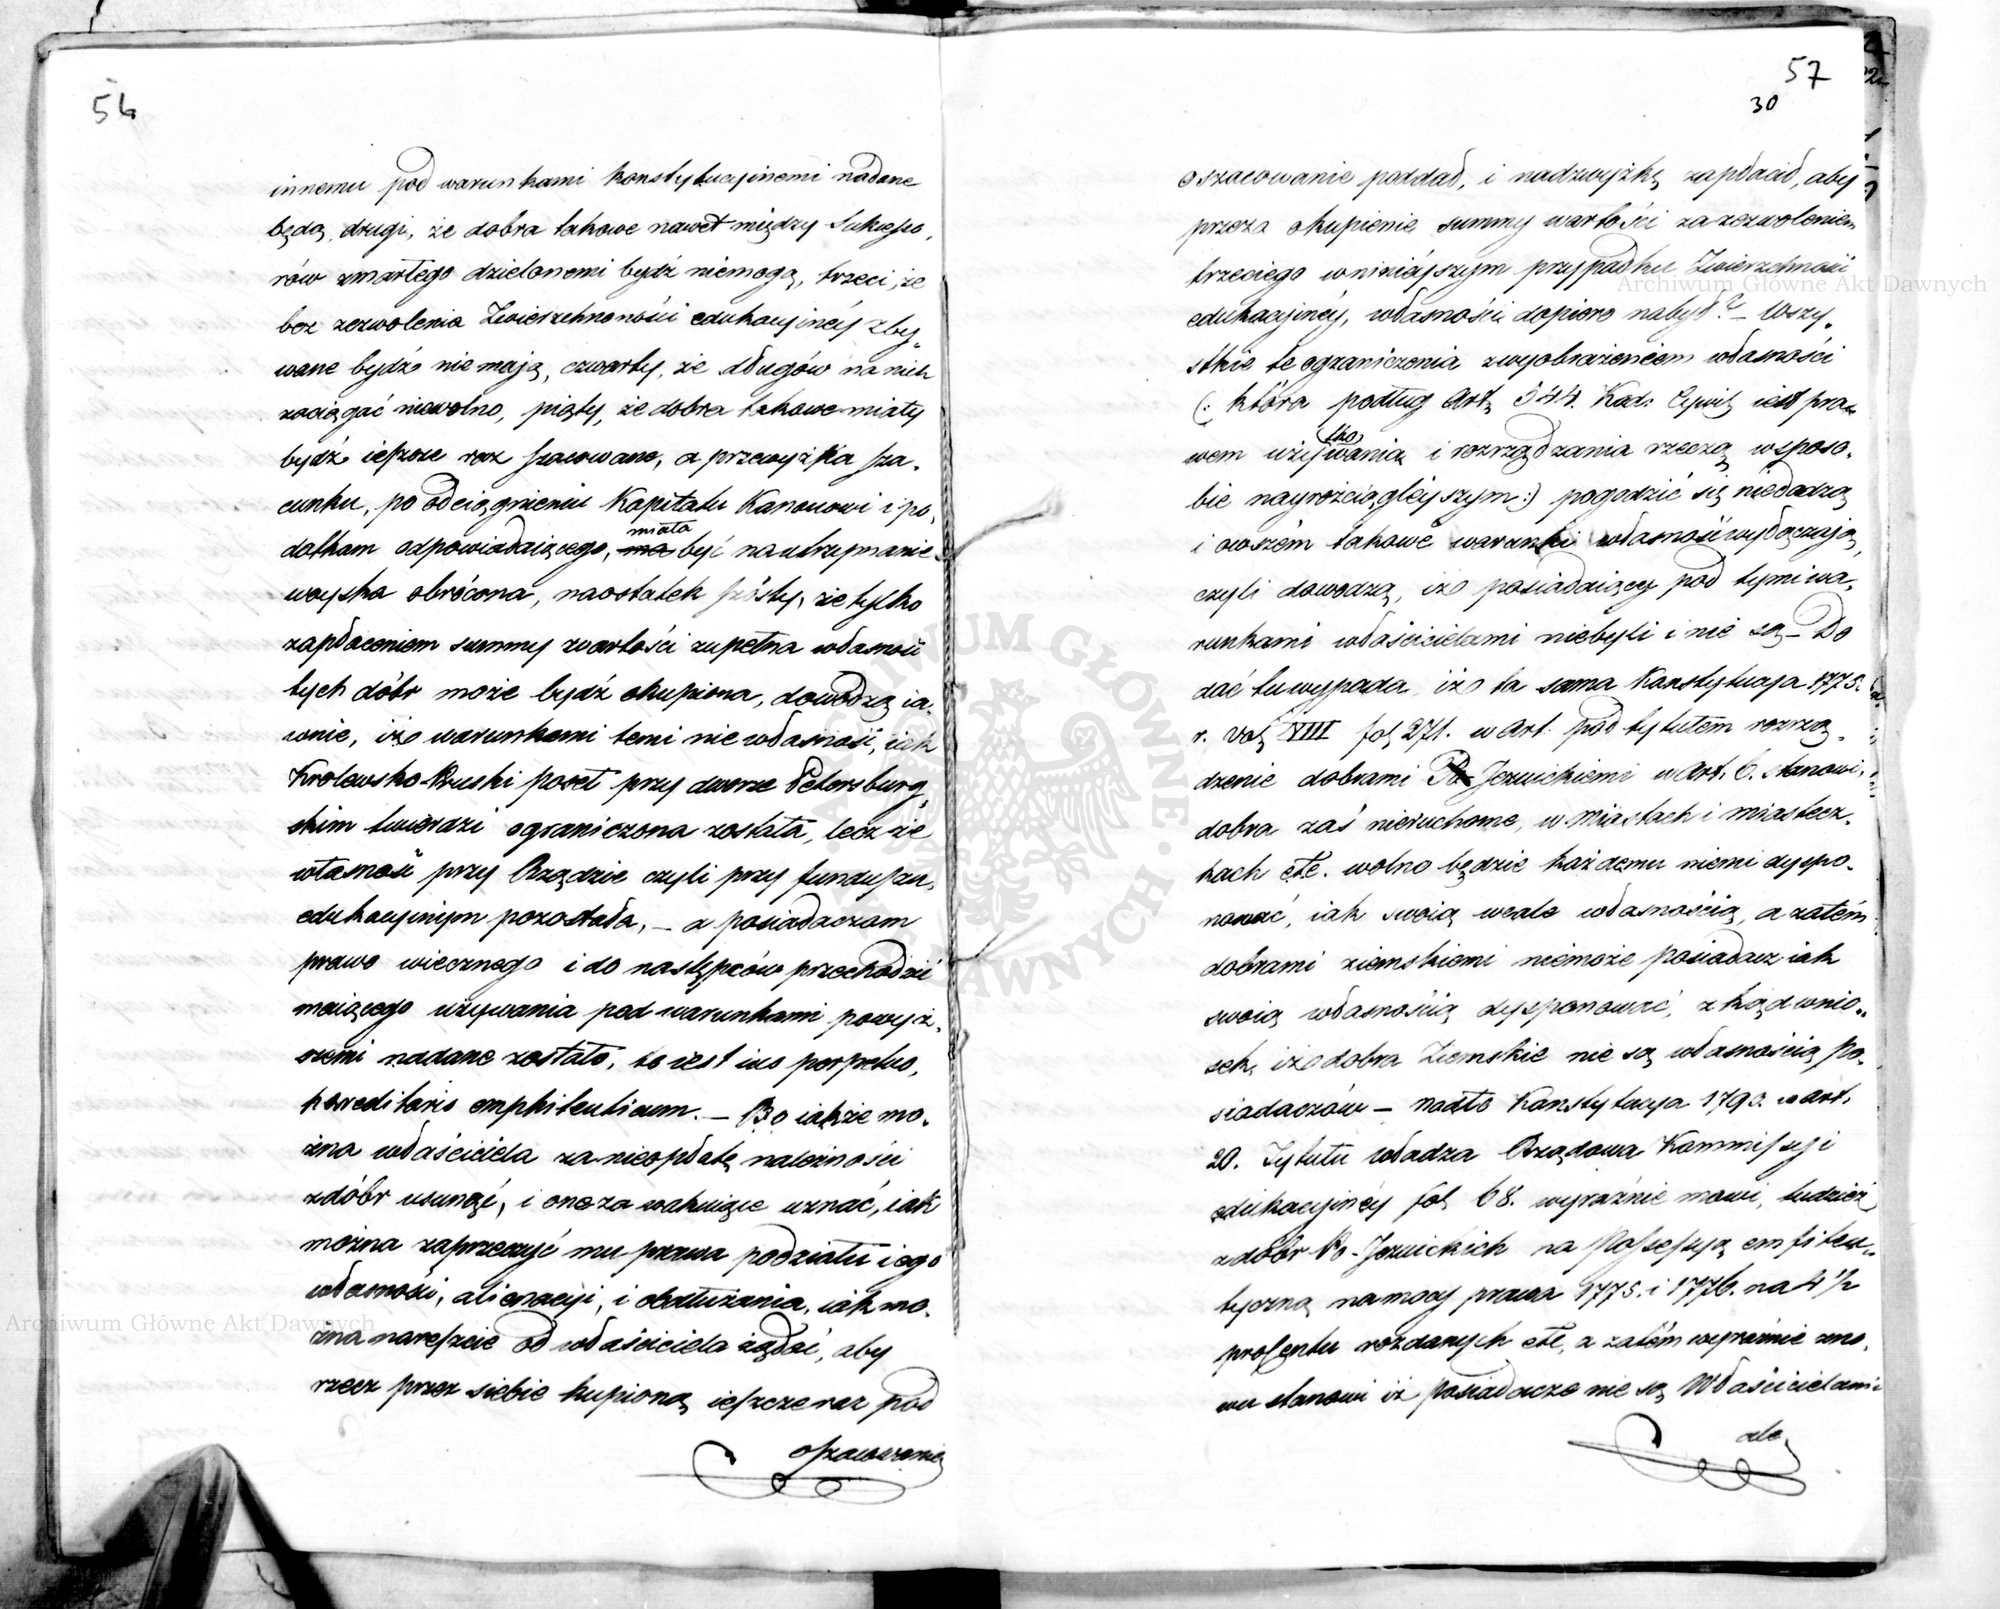 56
innemu pod warunkami konstytucyinemi nadane
będą, drugi, że dobra takowe nawet między Sukcesso„
rów zmarłego dzielonemi bydź niemogą, trzeci, że
bez zezwolenia Zwierzchnoności edukacyinéy zby„
wane bydź nie mają, czwarty, że długów na nich
zaciągać niewolno, piąty, że dobra takowe miały
bydź ieszcze raz szacowane, a przewyżka sza„
cunku, po odciągnieniu Kapitału Kanonowi i po„
datkom odpowiadaiącego, miała być na utrzymanie
woyska obrócona, naostatek szósty, że tylko
zapłaceniem summy wartości zupełna własność
tych dóbr może bydź okupiona, dowodzą ia„
wnie, iż warunkami temi nie własność, iak
Krolewsko-Pruski poseł przy dworze Petersburg„
skim twierdzi ograniczona została, lecz że
własność przy Rządzie czyli przy funduszu„
edukacyinym pozostała, – a posiadaczom
prawo wiecznego i do następców przechodzić
maiącego używania pod warunkami powyż„
szemi nadane zostało, to iest ius perpetuo,
hereditario emphiteuticum. – Bo iakże mo„
żna właściciela za nieopłatę należności
z dóbr usunąć, i one za wakuiące uznać, iak
można zaprzeczyć mu prawa podziału iego
własności, alienacyi, i obdłużania, iak mo„
żna nareszcie od właściciela żądać, aby
rzecz przez siebie kupioną ieszcze raz pod
oszacowanie
57
30
oszacowanie poddał, i nadzwyżkę zapłacił, aby
przez okupienie summy wartości za zezwoleniem
trzeciego w ninieyszym przypadku Zwierzchności
edukacyinéy, własności dopiero nabył? – Wszy„
stkie te ograniczenia z wyobrażeniem własności
(: która podług Art. 544. Kod: Cywil iest pra„
wem używania i rozrządzania rzeczą w sposo„
bie nayrozciągleyszym:) pogodzić się niedadzą
i owszem takowe warunki własność wyłączają,
czyli dowodzą, iż posiadaiący pod tymi wa„
runkami właścicielami niebyli i nie są – Do
dać tu wypada iż ta sama Konstytucya 1775.
r. Vol VIII fol 271. w Art: pod tytułem rozrzą„
dzenie dobrami Jezuickiemi w Art. 6. stanowi,
dobra zaś nieruchome, w Miastach i miastecz„
kach etc. wolno będzie każdemu niemi dyspo„
nować, iak swoią wcale własnością, a zatém
dobrami ziemskiemi niemoże posiadacz iak
swoią własnością dysponować, zkąd wnio„
sek, iż dobra Ziemskie nie są własnością po„
siadaczów – nadto Konstytucya 1790. w art.
20. Tytułu władza Rządowa Kommissyi
edukacyinéy fol 68. wyraźnie mowi, tudzież
z dóbr Po-Jezuickich na Possessyą emfiteu„
tyczną na mocy prawa 1775. i 1776. na 4 1/2
procentu rozdanych etc, a zatém wyraźnie zno„
wu stanowi iż posiadacze nie są Właścicielami
ale
Archiwum Główne Akt Dawnych
Archiwum Główne Akt Dawnych
ARCHIWUM GŁÓWNE AKT DAWNYCH